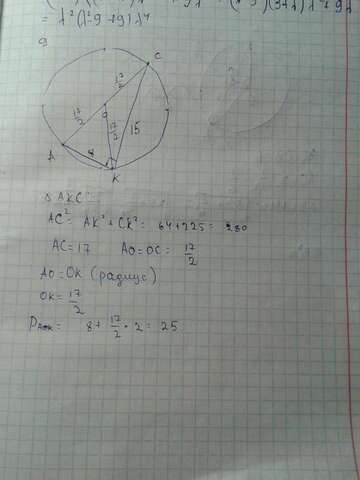 = λ²(λ²-9+9)λ⁴
9
C
17/2
17/2
O
17/2
15
A
8
K
△ AKC
AC² = AK² + CK² = 64+225 = 280
AC = 17 AO = OC = 17/2
AO = OK (радиус)
OK = 17/2
PAOK = 8 + 17/2 • 2 = 25